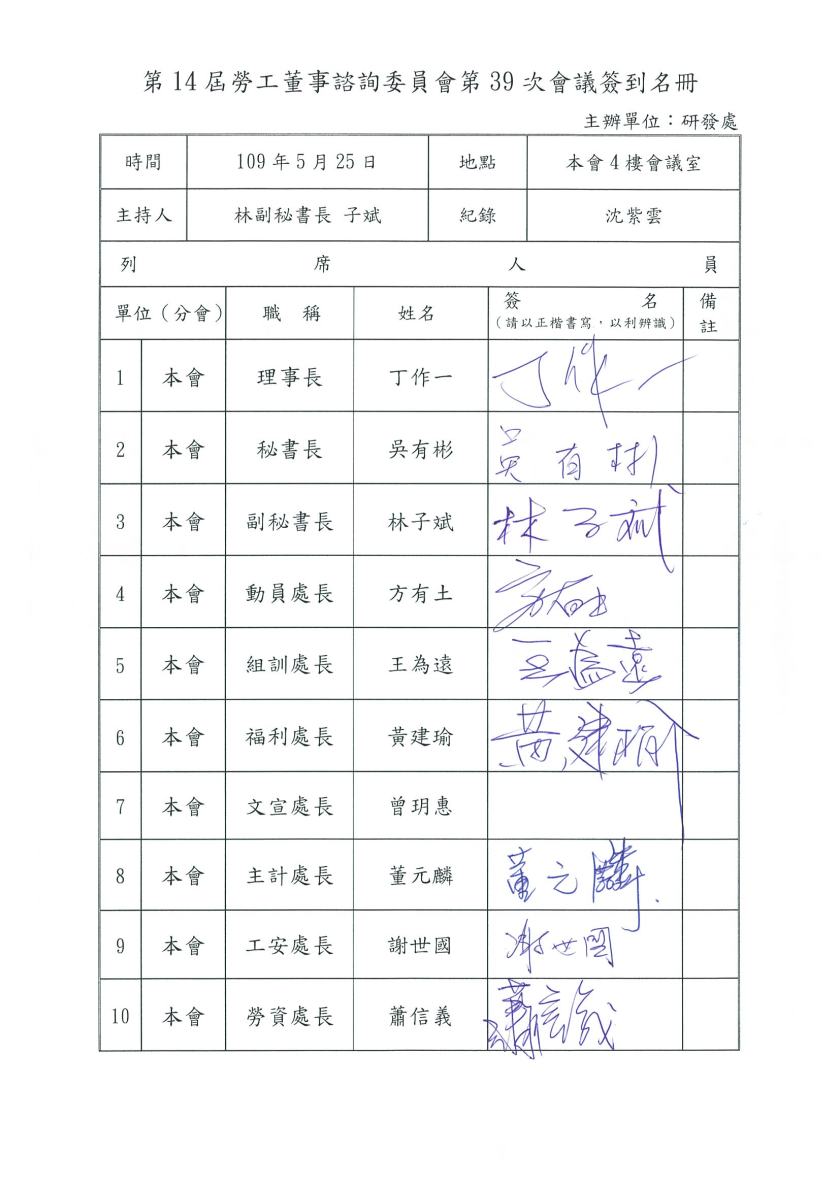 第14屆勞工董事諮詢委員會第39次會議簽到名冊
主辦單位：研發處
時間 109年5月25日 地點 本會4樓會議室
主持人 林副秘書長 子斌 紀錄 沈紫雲
列 席 人 員
單位（分會） 職 稱 姓名 簽 名 備註
（請以正楷書寫，以利辨識）
1 本會 理事長 丁作一 丁作一
2 本會 秘書長 吳有彬 吳有彬
3 本會 副秘書長 林子斌 林子斌
4 本會 動員處長 方有土 方有土
5 本會 組訓處長 王為遠 王為遠
6 本會 福利處長 黃建瑜 黃建瑜
7 本會 文宣處長 曾玥惠
8 本會 主計處長 董元麟 董元麟
9 本會 工安處長 謝世國 謝世國
10 本會 勞資處長 蕭信義